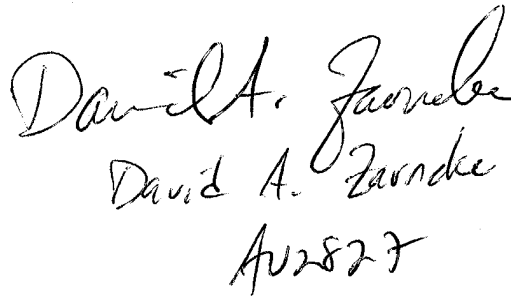 David A. Zarneke
David A. Zarneke
AU2827